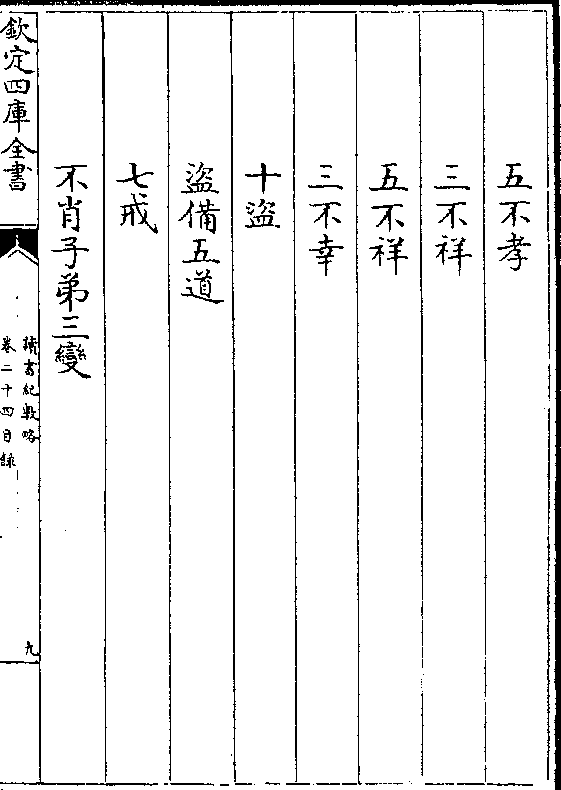 五不孝
三不祥
五不祥
三不幸
十盜
盜備五道
七戒
不肖子弟三變
欽定四庫全書
讀書紀數略
卷二十四目錄
九